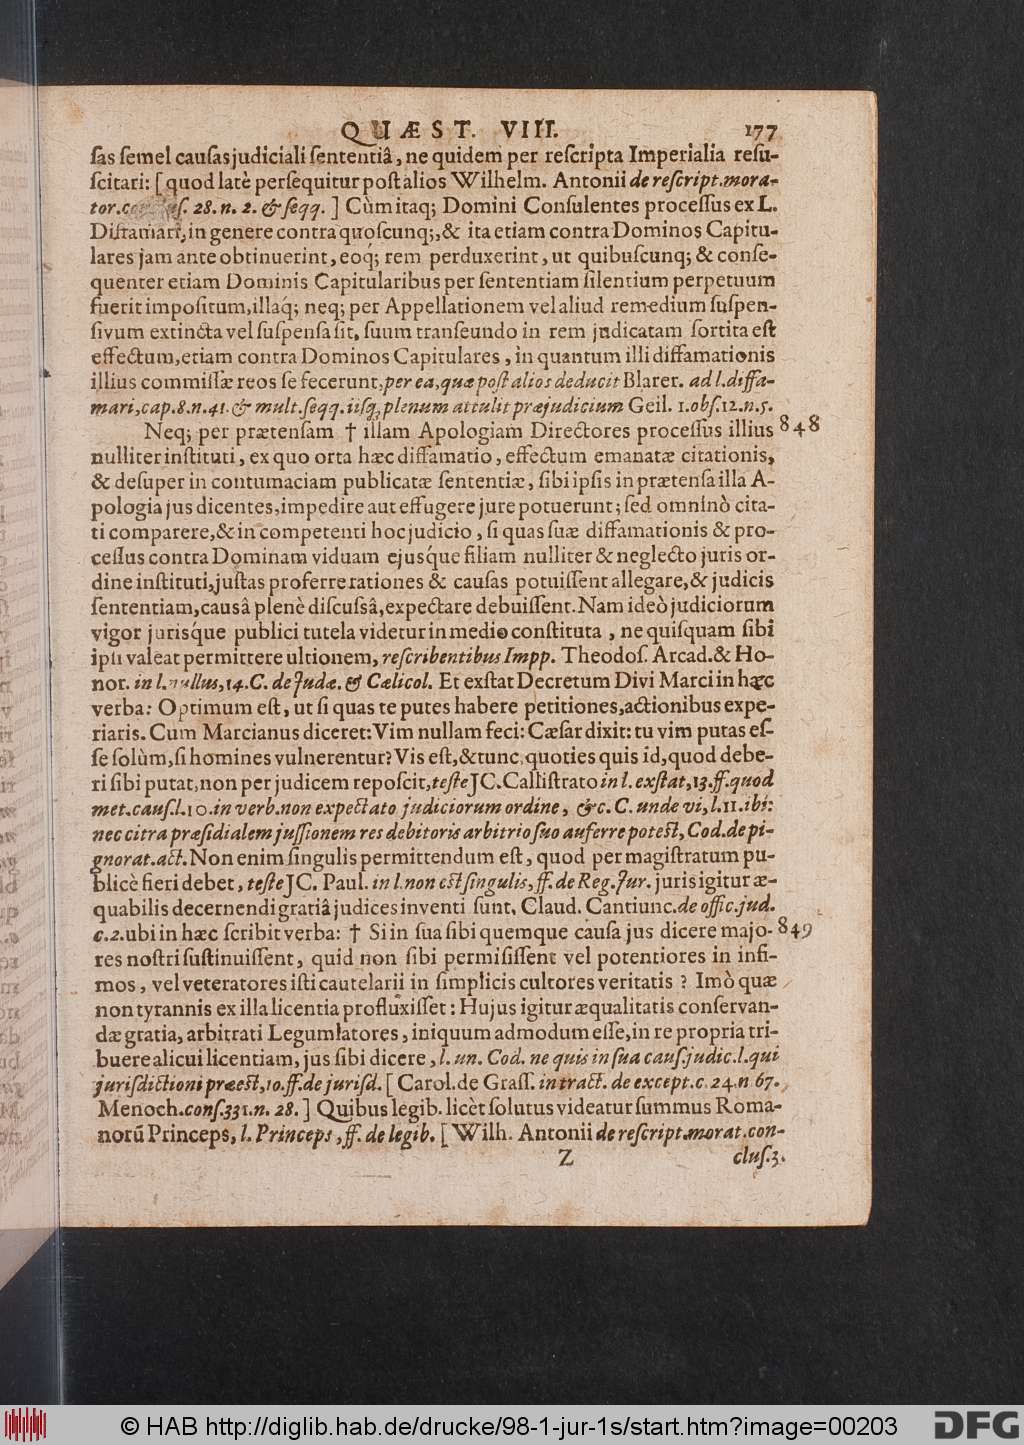 QUÆST. VIII. 177
ſas ſemel cauſas judiciali ſententiâ, ne quidem per reſcripta Imperialia reſu-
ſcitari: [ quod latè perſequitur poſt alios Wilhelm. Antonii de reſcript. mora-
tor. 28. n. 2. & ſeqq. ] Cùm itaq; Domini Conſulentes proceſſus ex L.
Diffamari, in genere contra quoſcunq;, & ita etiam contra Dominos Capitu-
lares jam ante obtinuerint, eoq́; rem perduxerint, ut quibuſcunq; & conſe-
quenter etiam Dominis Capitularibus per ſententiam ſilentium perpetuum
fuerit impoſitum, illáq; neq; per Appellationem vel aliud remedium ſuſpen-
ſivum extincta vel ſuſpenſa ſit, ſuum tranſeundo in rem judicatam ſortita eſt
effectum, etiam contra Dominos Capitulares, in quantum illi diffamationis
illius commiſſæ reos ſe fecerunt, per ea, quæ poſt alios deducit Blarer. ad l. diffa-
mari, cap. 8. n. 41. & mult. ſeqq. iiſq́; plenum attulit præjudicium Geil. 1. obſ. 12. n. 5.
Neq; per prætenſam † illam Apologiam Directores proceſſus illius 848
nulliter inſtituti, ex quo orta hæc diffamatio, effectum emanatæ citationis,
& deſuper in contumaciam publicatæ ſententiæ, ſibi ipſis in prætenſa illa A-
pologia jus dicentes, impedire aut effugere jure potuerunt; ſed omninò cita-
ti comparere, & in competenti hoc judicio, ſi quas ſuæ diffamationis & pro-
ceſſus contra Dominam viduam ejusq́ue filiam nulliter & neglecto juris or-
dine inſtituti, juſtas proferre rationes & cauſas potuiſſent allegare, & judicis
ſententiam, causâ plenè diſcuſsâ, expectare debuiſſent. Nam ideò judiciorum
vigor jurisq́ue publici tutela videtur in medio conſtituta, ne quiſquam ſibi
ipſi valeat permittere ultionem, reſcribentibus Impp. Theodoſ. Arcad. & Ho-
nor. in l. nullus, 14. C. de Judæ. & Cælicol. Et exſtat Decretum Divi Marci in hæc
verba: Optimum eſt, ut ſi quas te putes habere petitiones, actionibus expe-
riaris. Cum Marcianus diceret: Vim nullam feci: Cæſar dixit: tu vim putas eſ-
ſe ſolùm, ſi homines vulnerentur? Vis eſt, & tunc, quoties quis id, quod debe-
ri ſibi putat, non per judicem repoſcit, teſte JC. Calliſtrato in l. exſtat, 13. ff. quod
met. cauſ. l. 10. in verb. non expectato judiciorum ordine, &c. C. unde vi, l. 11. ibi:
nec citra præſidialem juſſionem res debitoris arbitrio ſuo auferre poteſt, Cod. de pi-
gnorat. act. Non enim ſingulis permittendum eſt, quod per magiſtratum pu-
blicè fieri debet, teſte JC. Paul. in l. non eſt ſingulis, ff. de Reg. Jur. juris igitur æ-
quabilis decernendi gratiâ judices inventi ſunt, Claud. Cantiunc. de offic. jud.
c. 2. ubi in hæc ſcribit verba: † Si in ſua ſibi quemque cauſa jus dicere majo- 849
res noſtri ſuſtinuiſſent, quid non ſibi permiſiſſent vel potentiores in infi-
mos, vel veteratores iſti cautelarii in ſimplicis cultores veritatis? Imò quæ
non tyrannis ex illa licentia profluxiſſet: Hujus igitur æqualitatis conſervan-
dæ gratia, arbitrati Legumlatores, iniquum admodum eſſe, in re propria tri-
buere alicui licentiam, jus ſibi dicere, l. un. Cod. ne quis in ſua cauſ. judic. l. qui
juriſdictioni præeſt, 10. ff. de juriſd. [ Carol. de Graſſ. in tract. de except. c. 24. n 67.
Menoch. conſ. 331. n. 28. ] Quibus legib. licèt ſolutus videatur ſummus Roma-
norũ Princeps, l. Princeps, ff. de legib. [ Wilh. Antonii de reſcript. morat. con-
Z cluſ. 3.
© HAB http://diglib.hab.de/drucke/98-1-jur-1s/start.htm?image=00203
DFG